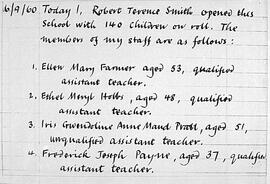 6/9/60 Today I, Robert Terence Smith opened this
School with 140 children on roll. The
members of my staff are as follows:
1. Ellen Mary Farmer aged 53, qualified
assistant teacher.
2. Ethel Meryl Hobbs, aged 48, qualified
assistant teacher.
3. Iris Gwendoline Anne Maud Pratt, aged 51,
unqualified assistant teacher.
4. Frederick Joseph Payne, aged 37, qualified
assistant teacher.